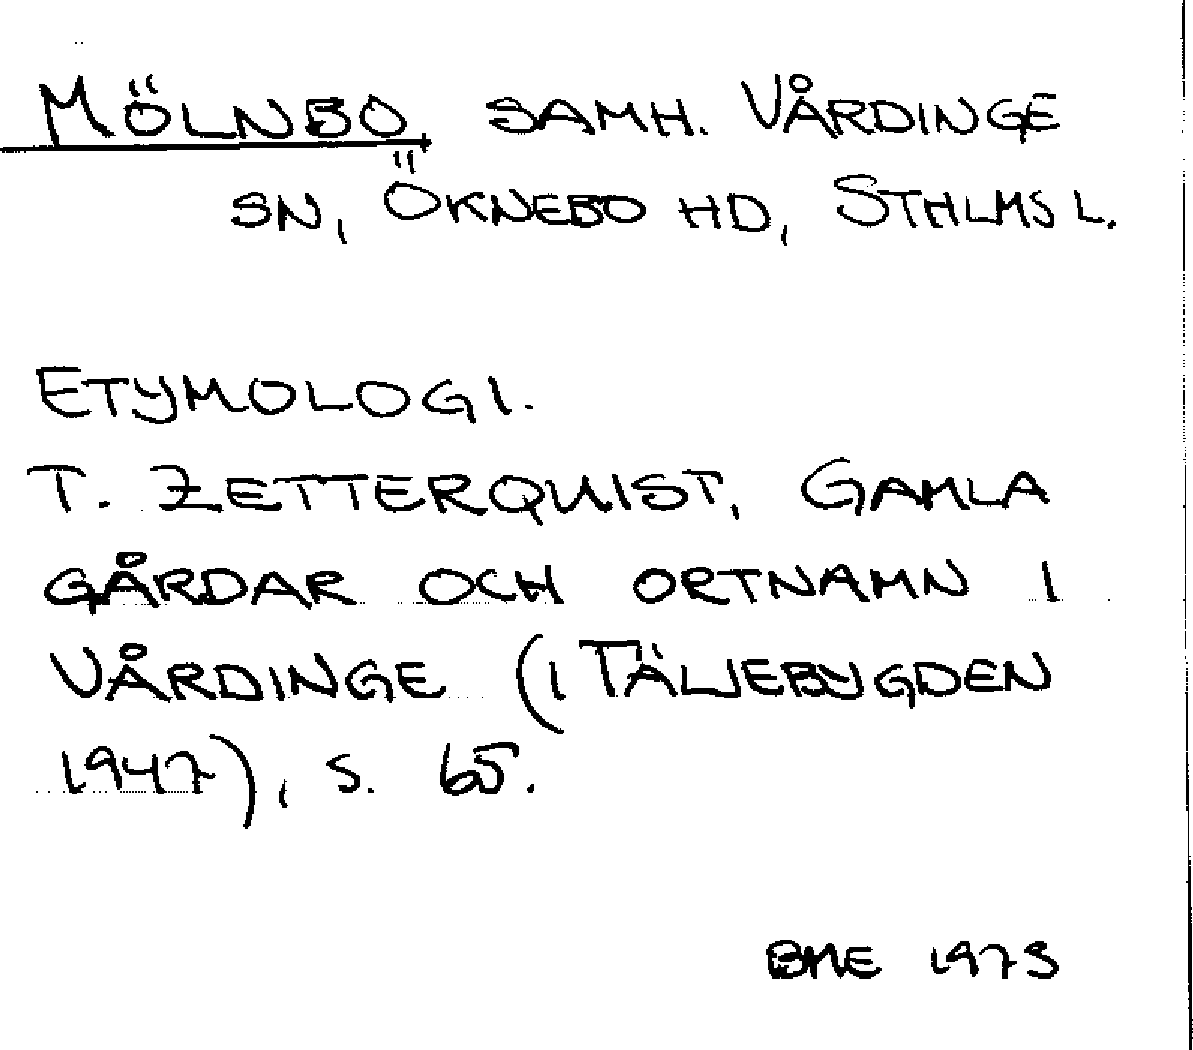 MÖLNBO, SAMH. VÅRDINGE
SN, ÖKNEBO HD, STHLMS L.
ETYMOLOGI.
T. ZETTERQUIST, GAMLA
GÅRDAR OCH ORTNAMN I
VÅRDINGE (I TÄLJEBYGDEN
1947), S. 65.
BME 1973